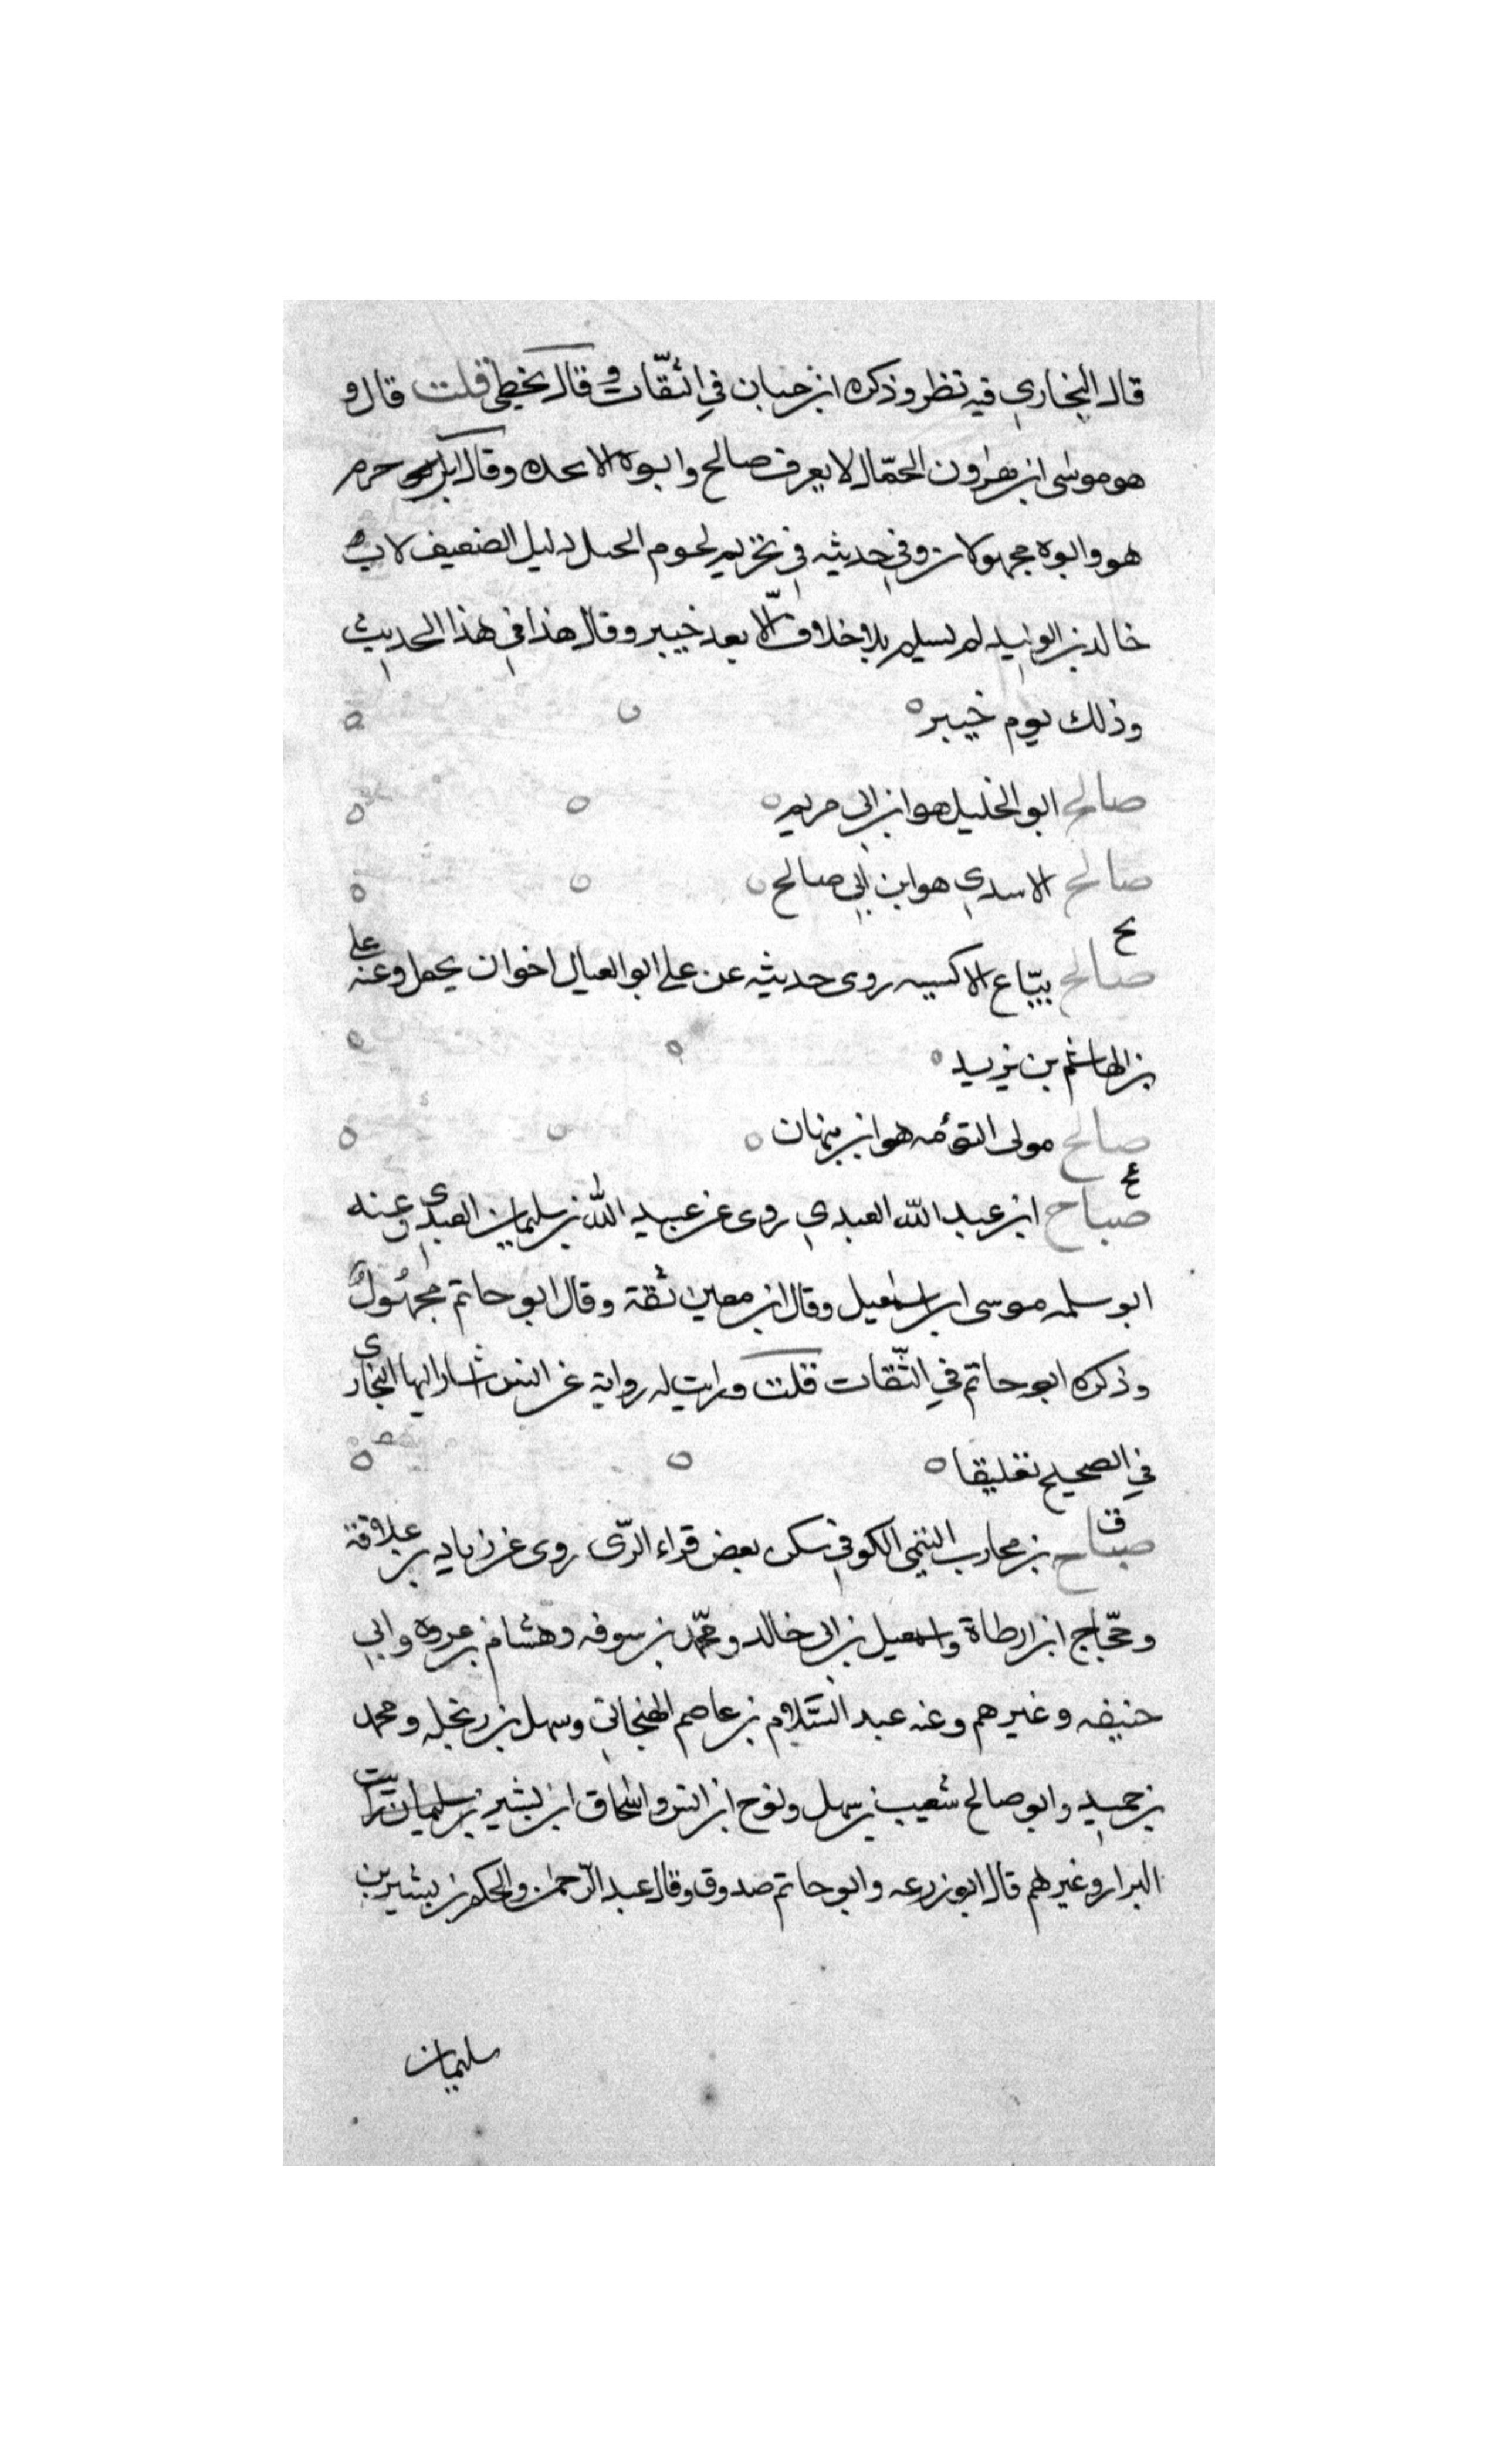 قال البخاري فيه نظر وذكره ابن حبان في الثقات و وقال يخطئ قلت قال و
هو موسى ابن هرون الحمّال لا يعرف صالح وابوه الا بجده وقال ابن حزم
هو وابوه مجهولان وفي حديثه في تحريم لحوم الخيل دليل الضعيف لان
خالد بن الوليد لم يسلم بلا خلاف الّا بعد خيبر وقال هذا في هذا الحديث
وذلك يوم خيبر
صالح ابو الخليل هو ابن ابي مريم
صالح الاسدي هو ابن ابي صالح
بخ
صالح بيّاع الاكسيه روى حديثه عن علي ابو العيال اخوان يحمل وعنه علي
بن الهاشم بن يزيد
صالح مولى التوءمه هو ابن نبهان
عخ
صباح ابن عبد الله العبدي روى عن عبيد الله بن سليمان العبدي وعنه
ابو سلمه موسى ابن اسمعيل وقال ابن معين ثقة وقال ابو حاتم مجهُولٌ
وذكره ابو حاتم في الثّقات قلت ورايت له رواية عن انس اشار اليها البخاري
في الصحيح تعليقا
ق
صبّاح بن محارب التيمي الكوفي سكن بعض قراء الرّى روى عن زياد بن علاقة
وحجّاج ابن ارطاة واسمعيل بن ابي خالد ومحمّد بن سوقه وهشام بن عروه وابي
حنيفه وغيرهم وعنه عبد السّلام بن عاصم الهنجاني وسهل بن زنجله ومحمد
بن حميد وابو صالح شعيب بن سهل ونوح ابن انس واسحاق ابن بشير بن سليمان
البزار وغيرهم قال ابو زرعه وابو حاتم صدوق وقال عبد الرّحمن والحكم بن بشير بن
سليمان